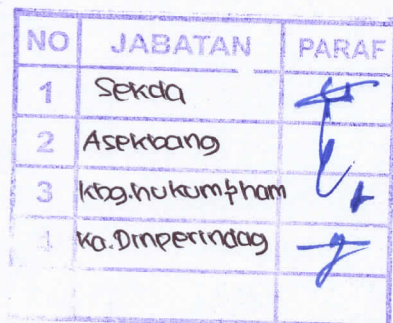 NO JABATAN PARAF
1 Sekda
2 Asekbang
3 kbg.hukum&ham
4 ka.Dinperindag